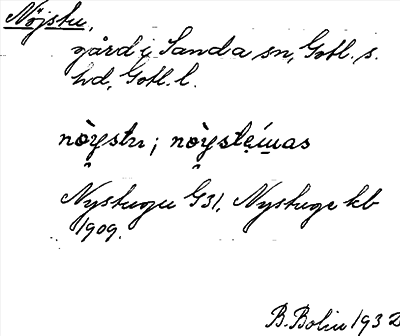 Nöjstu,
gård i Sanda sn, Gotl. s.
hd, Gotl. l.
nòystu; nòystęímas
Nystugu G31, Nystuge kb
1909.
B. Bolin 1932